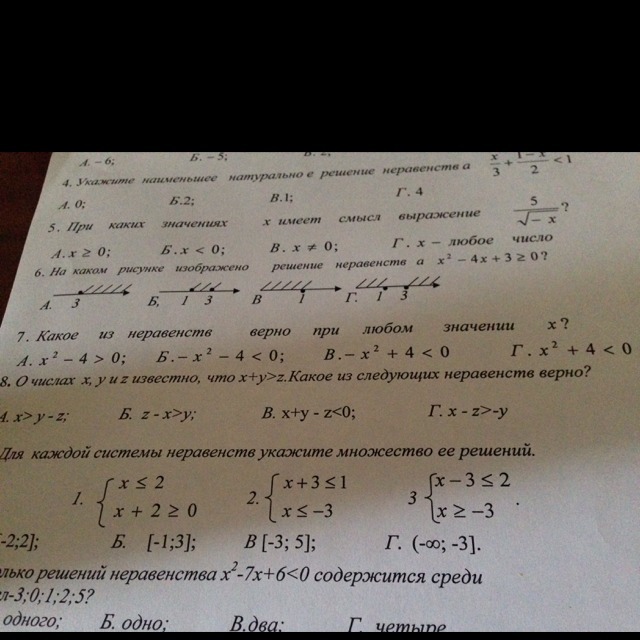 А. – 6; Б. – 5; В. 2;
4. Укажите наименьшее натуральное решение неравенства x/3 + (1 – x)/2 < 1
А. 0; Б.2; В.1; Г. 4
5. При каких значениях x имеет смысл выражение 5/√(– x) ?
А.x ≥ 0; Б.x < 0; В. x ≠ 0; Г. x – любое число
6. На каком рисунке изображено решение неравенств а x² – 4x + 3 ≥ 0?
А. 3 Б, 1 3 В 1 Г. 1 3
7. Какое из неравенств верно при любом значении x?
А. x² – 4 > 0; Б. – x² – 4 < 0; В. – x² + 4 < 0 Г. x² + 4 < 0
8. О числах x, y и z известно, что x+y>z.Какое из следующих неравенств верно?
А. x> y - z; Б. z - x>y; В. x+y - z<0; Г. x - z>-y
Для каждой системы неравенств укажите множество ее решений.
1. { x ≤ 2 2. { x + 3 ≤ 1 3 { x – 3 ≤ 2
x + 2 ≥ 0 x ≤ –3 x ≥ –3 .
-2;2]; Б. [-1;3]; В [-3; 5]; Г. (-∞; -3].
лько решений неравенства x²-7x+6<0 содержится среди
л-3;0;1;2;5?
одного; Б. одно; В.два; Г. четыре